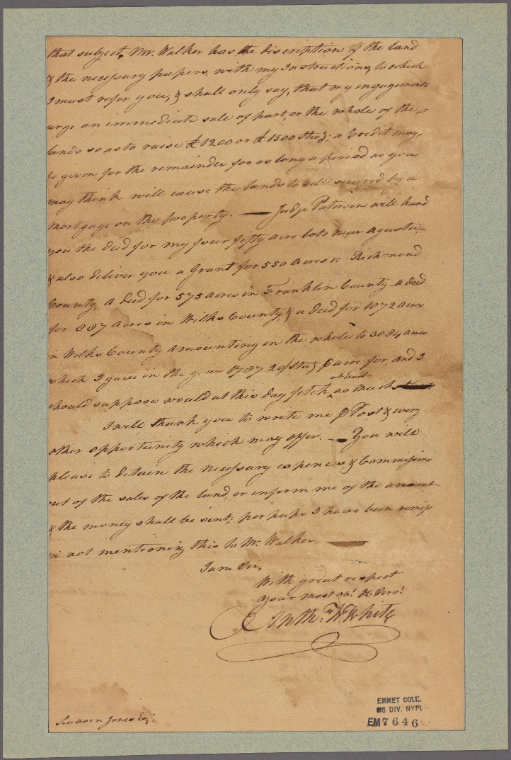 that subject, Mr. Walker has the discription of the land
& the necessary papers, with my Instructions, to which
I must refer you, & shall only say, that my engagements
urge an immediate sale of part or the whole of the
lands so as to raise £1200 or £1500 Stg; a Credit may
be given for the remainder for as long a period as you
may think will cause the lands to sell secured by a
mortgage on the property. — Judge Paterson will hand
you the deed for my four fifty acre lots near Agusta,
& also deliver you a Grant for 550 acres in Richmond
County, a deed for 575 acres in Franklin County a deed
for 887 acres in Wilks County, & a deed for 1072 acres
in Wilks County amounting in the whole to 3084 acres
which I gave in the year 1787 2/ Stg. acre for and I
should suppose would at this day fetch as much
I will thank you to write me P Post & every
other opportunity which may offer. — You will
please to detain the necessary expences & Commissions
out of the sales of the land, or inform me of the amount
& the money shall be sent; perhaps I have been remiss
in not mentioning this to Mr. Walker —
I am Sir,
With great respect
Your most ob.t H Serv.t
Anth.y W. White
Seaborn Jones Esq.r
EMMET COLL.
MS DIV. NYPL
EM7646